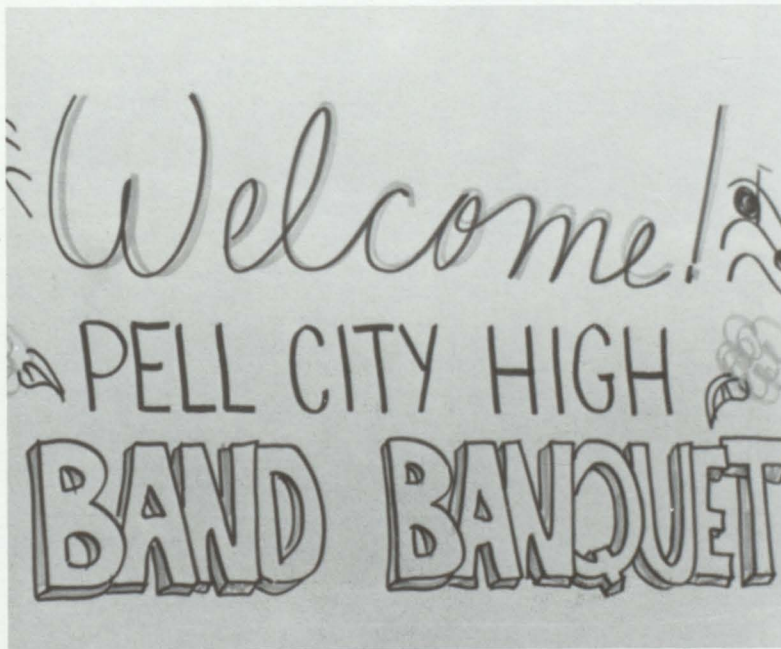 Welcome!
PELL CITY HIGH
BAND BANQUET